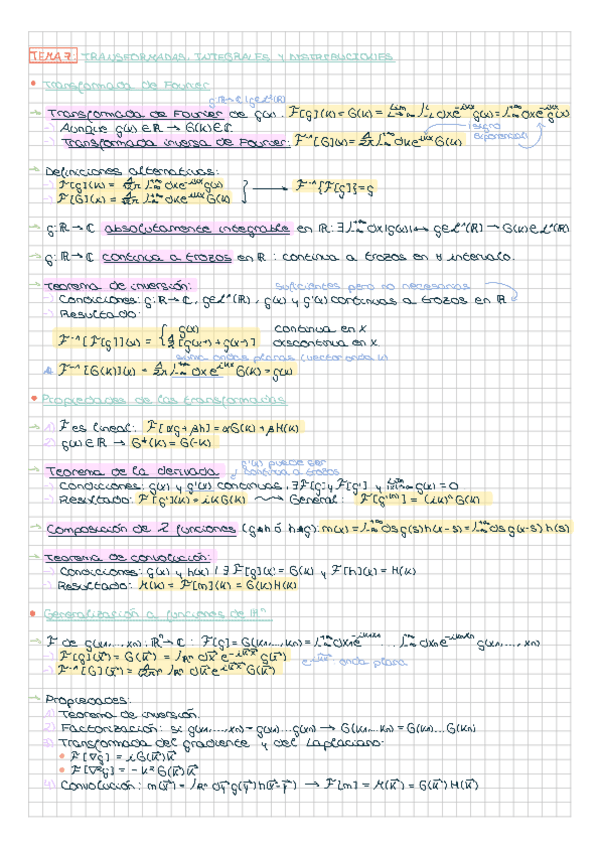 TEMA 7: TRANSFORMADAS INTEGRALES Y DISTRIBUCIONES
• Transformada de Fourier
g:ℝ→ℂ | g∈L¹(ℝ)
→ Transformada de Fourier de g(x): F[g](k) = G(k) = lim L→∞ ∫₋L^L dx e^-ikx g(x) = ∫₋∞^+∞ dx e^-ikx g(x)
-) Aunque g(x)∈ℝ → G(k)∈ℂ
(signo exponencial)
-) Transformada inversa de Fourier: F⁻¹[G](x) = 1/2π ∫₋∞^+∞ dk e^ikx G(k)
→ Definiciones alternativas:
-) F[g](k) = 1/√2π ∫₋∞^+∞ dx e^-ikx g(x)
-) F[G](x) = 1/√2π ∫₋∞^+∞ dk e^ikx G(k)
→ F⁻¹{F[g]} = g
→ g:ℝ→ℂ absolutamente integrable en ℝ: ∃ ∫₋∞^+∞ dx |g(x)| ↔ g∈L¹(ℝ) → G(k)∈L¹(ℝ)
→ g:ℝ→ℂ continua a trozos en ℝ: continua a trozos en ∀ intervalo.
→ Teorema de inversión: suficientes pero no necesarias
-) Condiciones: g:ℝ→ℂ, g∈L¹(ℝ), g(x) y g'(x) continuas a trozos en ℝ
-) Resultado:
F⁻¹[F[g]](x) = { g(x) continua en x
½[g(x⁻)+g(x⁺)] discontinua en x
suma ondas planas (vector onda k)
F⁻¹[G(k)](x) = 1/2π ∫₋∞^+∞ dk e^ikx G(k) = g(x)
• Propiedades de las transformadas
→ 1) F es lineal: F[αg+βh] = αG(k)+βH(k)
2) g(x)∈ℝ → G*(k) = G(-k)
→ Teorema de la derivada g'(x) puede ser continua a trozos
-) Condiciones: g(x) y g'(x) continuas, ∃F[g] y F[g'] y lim x→±∞ g(x) = 0
-) Resultado: F[g'](k) = ikG(k) ⟿ General: F[g⁽ⁿ⁾] = (ik)ⁿ G(k)
→ Composición de 2 funciones (g*h ó h*g): m(x) = ∫₋∞^+∞ ds g(s)h(x-s) = ∫₋∞^+∞ ds g(x-s)h(s)
→ Teorema de convolución:
-) Condiciones: g(x) y h(x) / ∃ F[g](k) = G(k) y F[h](k) = H(k)
-) Resultado: M(k) = F[m](k) = G(k)H(k)
• Generalización a funciones de ℝⁿ
→ F de g(x₁,...,xₙ): ℝⁿ→ℂ: F[g] = G(k₁,...,kₙ) = ∫₋∞^+∞ dx₁ e^-ik₁x₁ ... ∫₋∞^+∞ dxₙ e^-ikₙxₙ g(x₁,...,xₙ)
-) F[g](k⃗) = G(k⃗) = ∫ℝⁿ dx⃗ e^-ik⃗x⃗ g(x⃗)
onda plana
-) F⁻¹[G](x⃗) = 1/(2π)ⁿ ∫ℝⁿ dk⃗ e^ik⃗x⃗ G(k⃗)
→ Propiedades:
1) Teorema de inversión.
2) Factorización: si g(x₁,...,xₙ) = g(x₁)...g(xₙ) → G(k₁,...,kₙ) = G(k₁)...G(kₙ)
3) Transformada del gradiente y del Laplaciano:
• F[∇g] = iG(k⃗)k⃗
• F[∇²g] = -k² G(k⃗)
4) Convolución: m(x⃗) = ∫ℝⁿ dy⃗ g(y⃗)h(x⃗-y⃗) → F[m] = M(k⃗) = G(k⃗)H(k⃗)